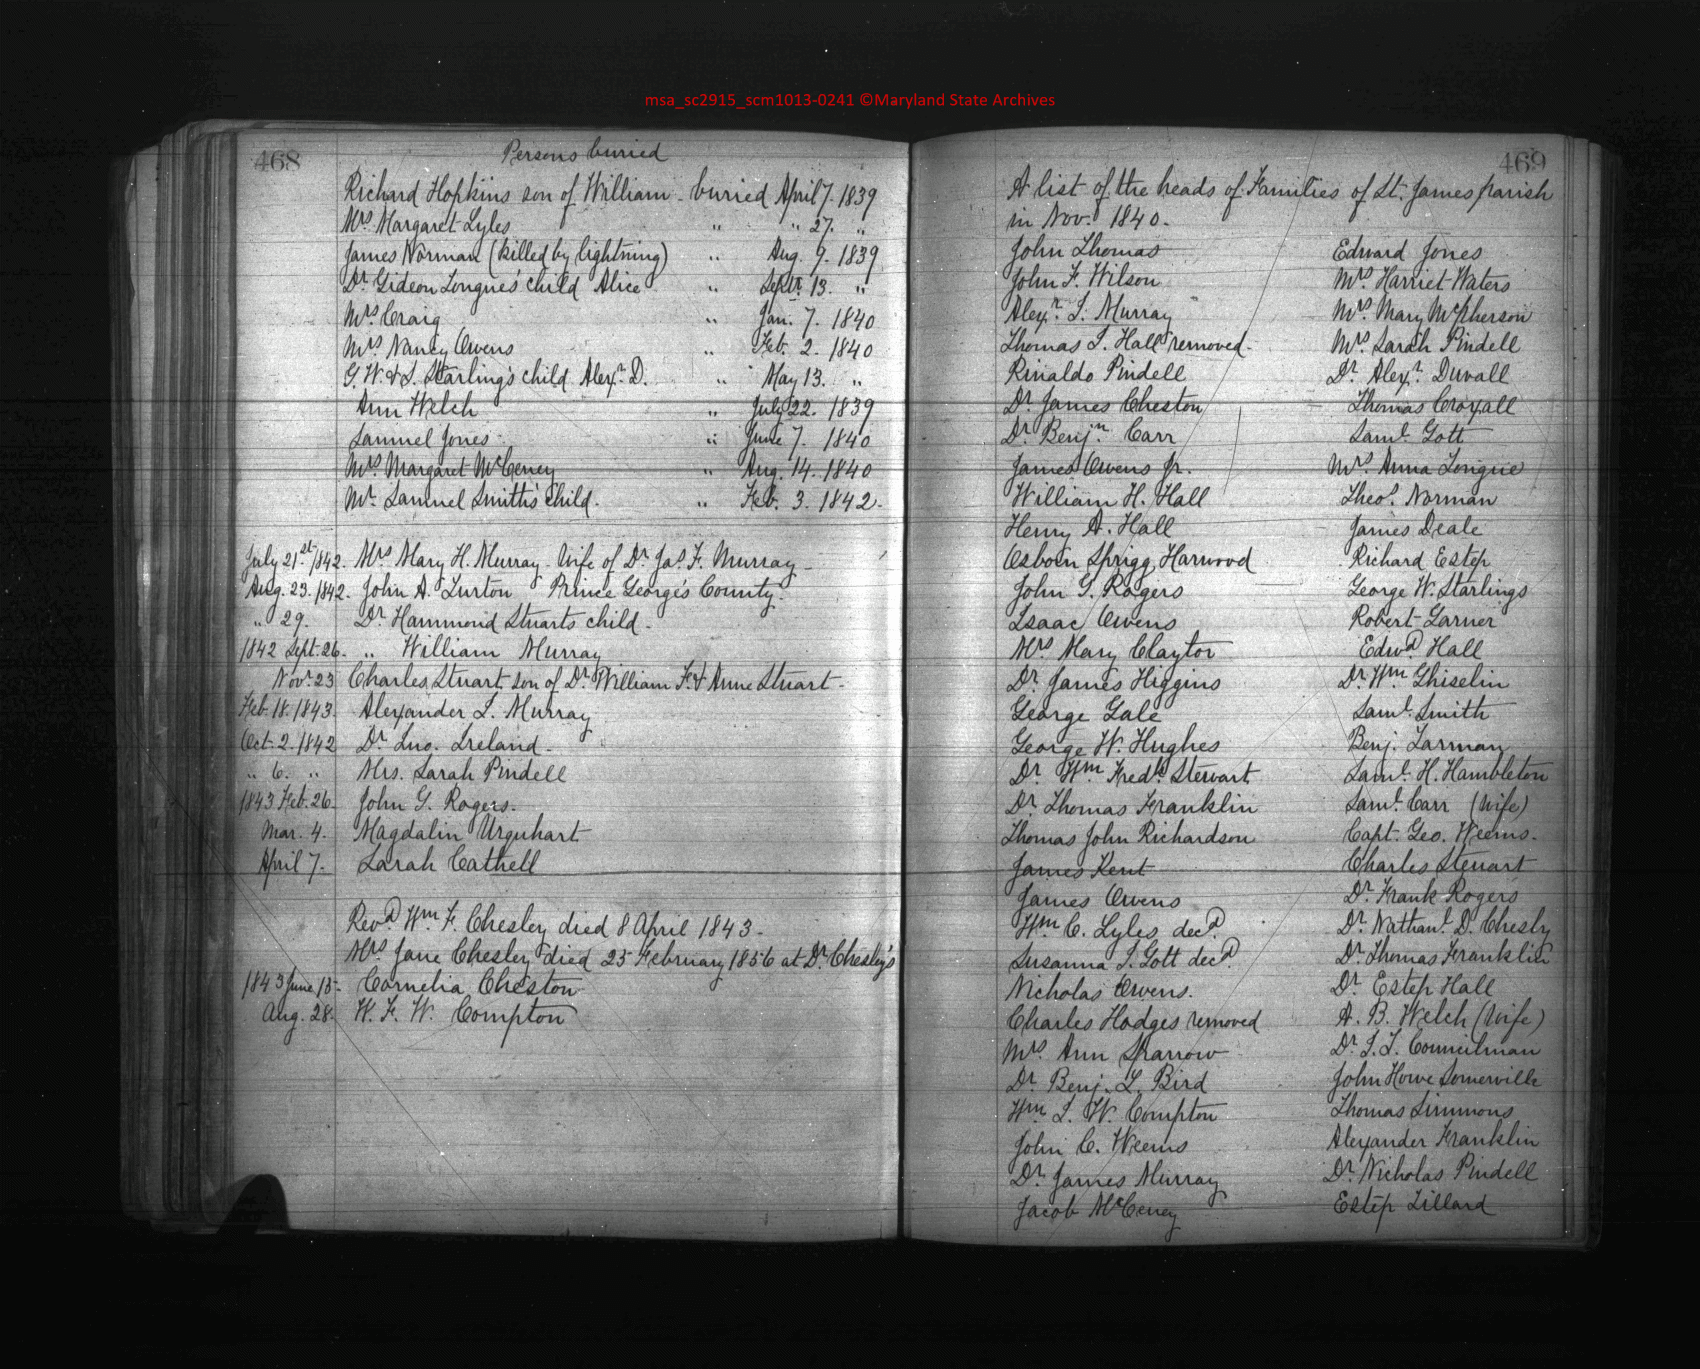 msa_sc2915_scm1013-0241 ©Maryland State Archives
468
Persons buried
Richard Hopkins son of William - buried April 7. 1839
Mrs Margaret Lyles " " 27. "
James Norman (killed by lightning) " Aug. 9. 1839
Dr. Gideon Longue's child Alice " Septr. 13. "
Mrs Craig " Jan. 7. 1840
Mrs Nancy Owens " Feb. 2. 1840
G. W. & S. Starling's child Alexr. D. " May 13. "
Ann Welch " July 22. 1839
Samuel Jones " June 7. 1840
Mrs Margaret McCeney " Aug. 14. 1840
Mr. Samuel Smith's child. " Feb. 3. 1842.
July 21st 1842. Mrs Mary H. Murray - Wife of Dr Jas. F. Murray -
Aug. 23. 1842. John A. Turton Prince George's County.
" 29. Dr Hammond Stuarts child -
1842 Sept. 26. " William Murray
Novr. 23 Charles Stuart son of Dr William F. & Anne Stuart -
Feb. 18. 1843. Alexander S. Murray
Oct. 2. 1842 Dr. Jno. Ireland -
" 6. " Mrs. Sarah Pindell
1843 Feb. 26. John G. Rogers -
Mar. 4. Magdalin Urquhart
April 7. Sarah Cathell
Revd Wm F. Chesley died 8 April 1843 -
Mrs Jane Chesley died 25 February 1856 at Dr. Chesley's
1843 June 13 - Cornelia Cheston
Aug. 28. W. F. W. Compton
469
A list of the heads of Families of St. James parish
in Nov. 1840 -
John Thomas Edward Jones
John F. Wilson Mrs Harriet Waters
Alexr. S. Murray Mrs Mary McPherson
Thomas S. Hall removed - Mrs Sarah Pindell
Rinaldo Pindell Dr Alexr. Duvall
Dr. James Cheston Thomas Croxall
Dr. Benjn. Carr Saml. Gott
James Owens Jr. Mrs Anna Longue
William H. Hall Theos. Norman
Henry A. Hall James Deale
Osborn Sprigg Harwood Richard Estep
John G. Rogers George W. Starlings
Isaac Owens Robert Garner
Mrs Mary Claytor Edwd Hall
Dr. James Higgins Dr. Wm Ghiselin
George Gale Saml. Smith
George W. Hughes Benj. Larman
Dr. Wm Fredk. Stewart Saml. H. Hambleton
Dr. Thomas Franklin Saml. Carr (Wife)
Thomas John Richardson Capt. Geo. Weems.
James Kent Charles Steuart
James Owens Dr Frank Rogers
Wm C. Lyles decd. Dr. Nathanl. D. Chesley
Susanna S. Gott decd. Dr. Thomas Franklin
Nicholas Owens. Dr. Estep Hall
Charles Hodges removed A. B. Welch (Wife)
Mrs. Ann Sparrow Dr. Councilman
Dr. Benj. L. Bird John Howe Somerville
Wm. W. Compton Thomas Simmons
John C. Weems Alexander Franklin
Dr. James Murray Dr. Nicholas Pindell
Jacob McCeney Estep Lillard